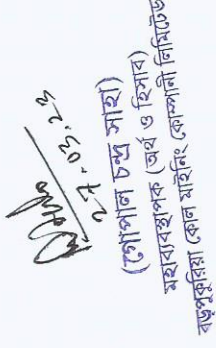 27.03.23
(গোপাল চন্দ্র সাহা)
মহাব্যবস্থাপক (অর্থ ও হিসাব)
বড়পুকুরিয়া কোল মাইনিং কোম্পানী লিমিটেড